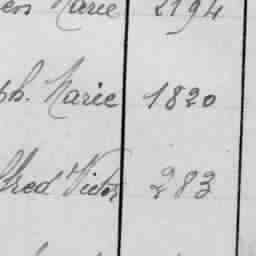 Marie 2194
ph. Marie 1820
fred Victor 283